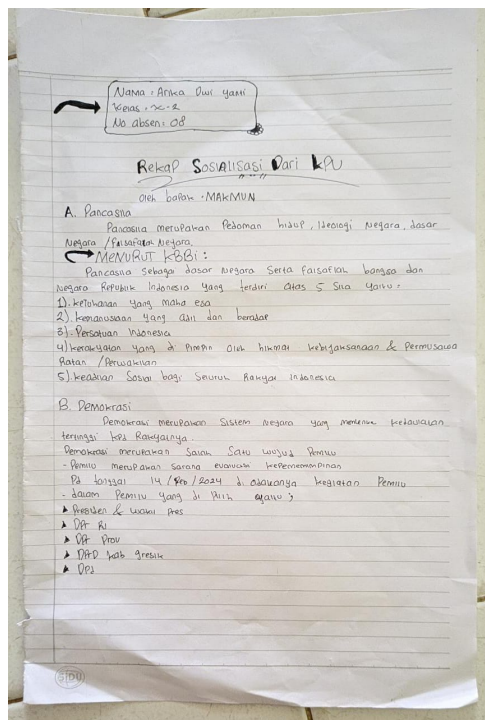 Nama : Anka Dwi Yanti
Kelas : X-2
No absen : 08
Rekap Sosialisasi Dari KPU
Oleh bapak . MAKMUN
A. Pancasila
Pancasila merupakan Pedoman hidup, Ideologi Negara, dasar
Negara / Falsafah Negara.
MENURUT KBBI :
Pancasila Sebagai dasar Negara Serta Falsafah bangsa dan
Negara Republik Indonesia yang terdiri atas 5 Sila yaitu :
1). Ketuhanan Yang Maha esa
2). Kemanusiaan yang adil dan beradap
3). Persatuan Indonesia
4) kerakyatan yang di Pimpin Oleh hikmat kebijaksanaan & Permusawa
Ratan / Perwakilan
5). keadilan Sosial bagi Seluruh Rakyat Indonesia
B. Demokrasi
Demokrasi merupakan Sistem Negara yang kedaulatan
tertinggi kpd Rakyatnya.
Demokrasi merupakan Salah Satu wujud Pemilu
- Pemilu merupakan Sarana evaluasi kepememimpinan
Pd tanggal 14 / Feb / 2024 di adakanya kegiatan Pemilu
- dalam Pemilu yang di Pilih yaitu ;
Presiden & wakil Pres
DPR RI
DPR Prov
DPRD kab gresik
DPD
SIDU